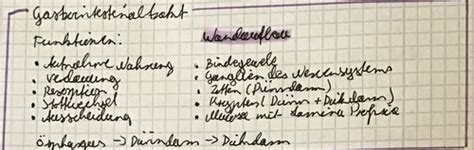 Gastrointestinaltrakt
Funktionen:
• Aufnahme Nahrung
• Verdauung
• Resorption
• Stoffwechsel
• Ausscheidung
Wandaufbau
• Bindegewebe
• Ganglien des Nervensystems
• Zotten (Dünndarm)
• Krypten (Dünn + Dickdarm)
• Mucosa mit Lamina Propria
Ösophagus → Dünndarm → Dickdarm